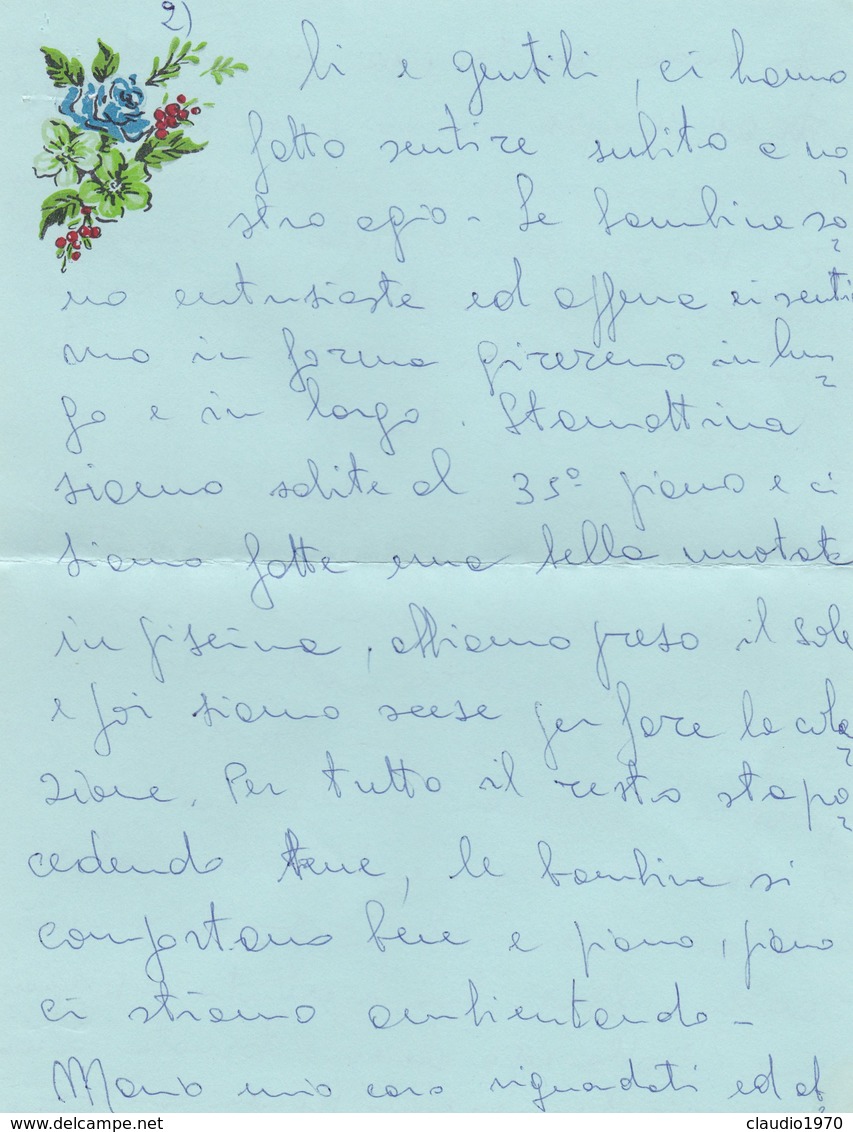 2)
li e gentili, ci hanno
fatto sentire subito a no
stro agio - Le bambine so
no entusiaste ed appena ci senti
mo in forma gireremo in lun
go e in largo. Stamattina
siamo salite al 35º piano e ci
siamo fatte una bella nuotata
in piscina, abbiamo preso il sole
e poi siamo scese per fare la cola
zione. Per tutto il resto sta pro
cedendo bene, le bambine si
comportano bene e piano, piano
ci stiamo ambientando -
Mario mio caro riguardati ed ap
delcampe.net
claudio1970